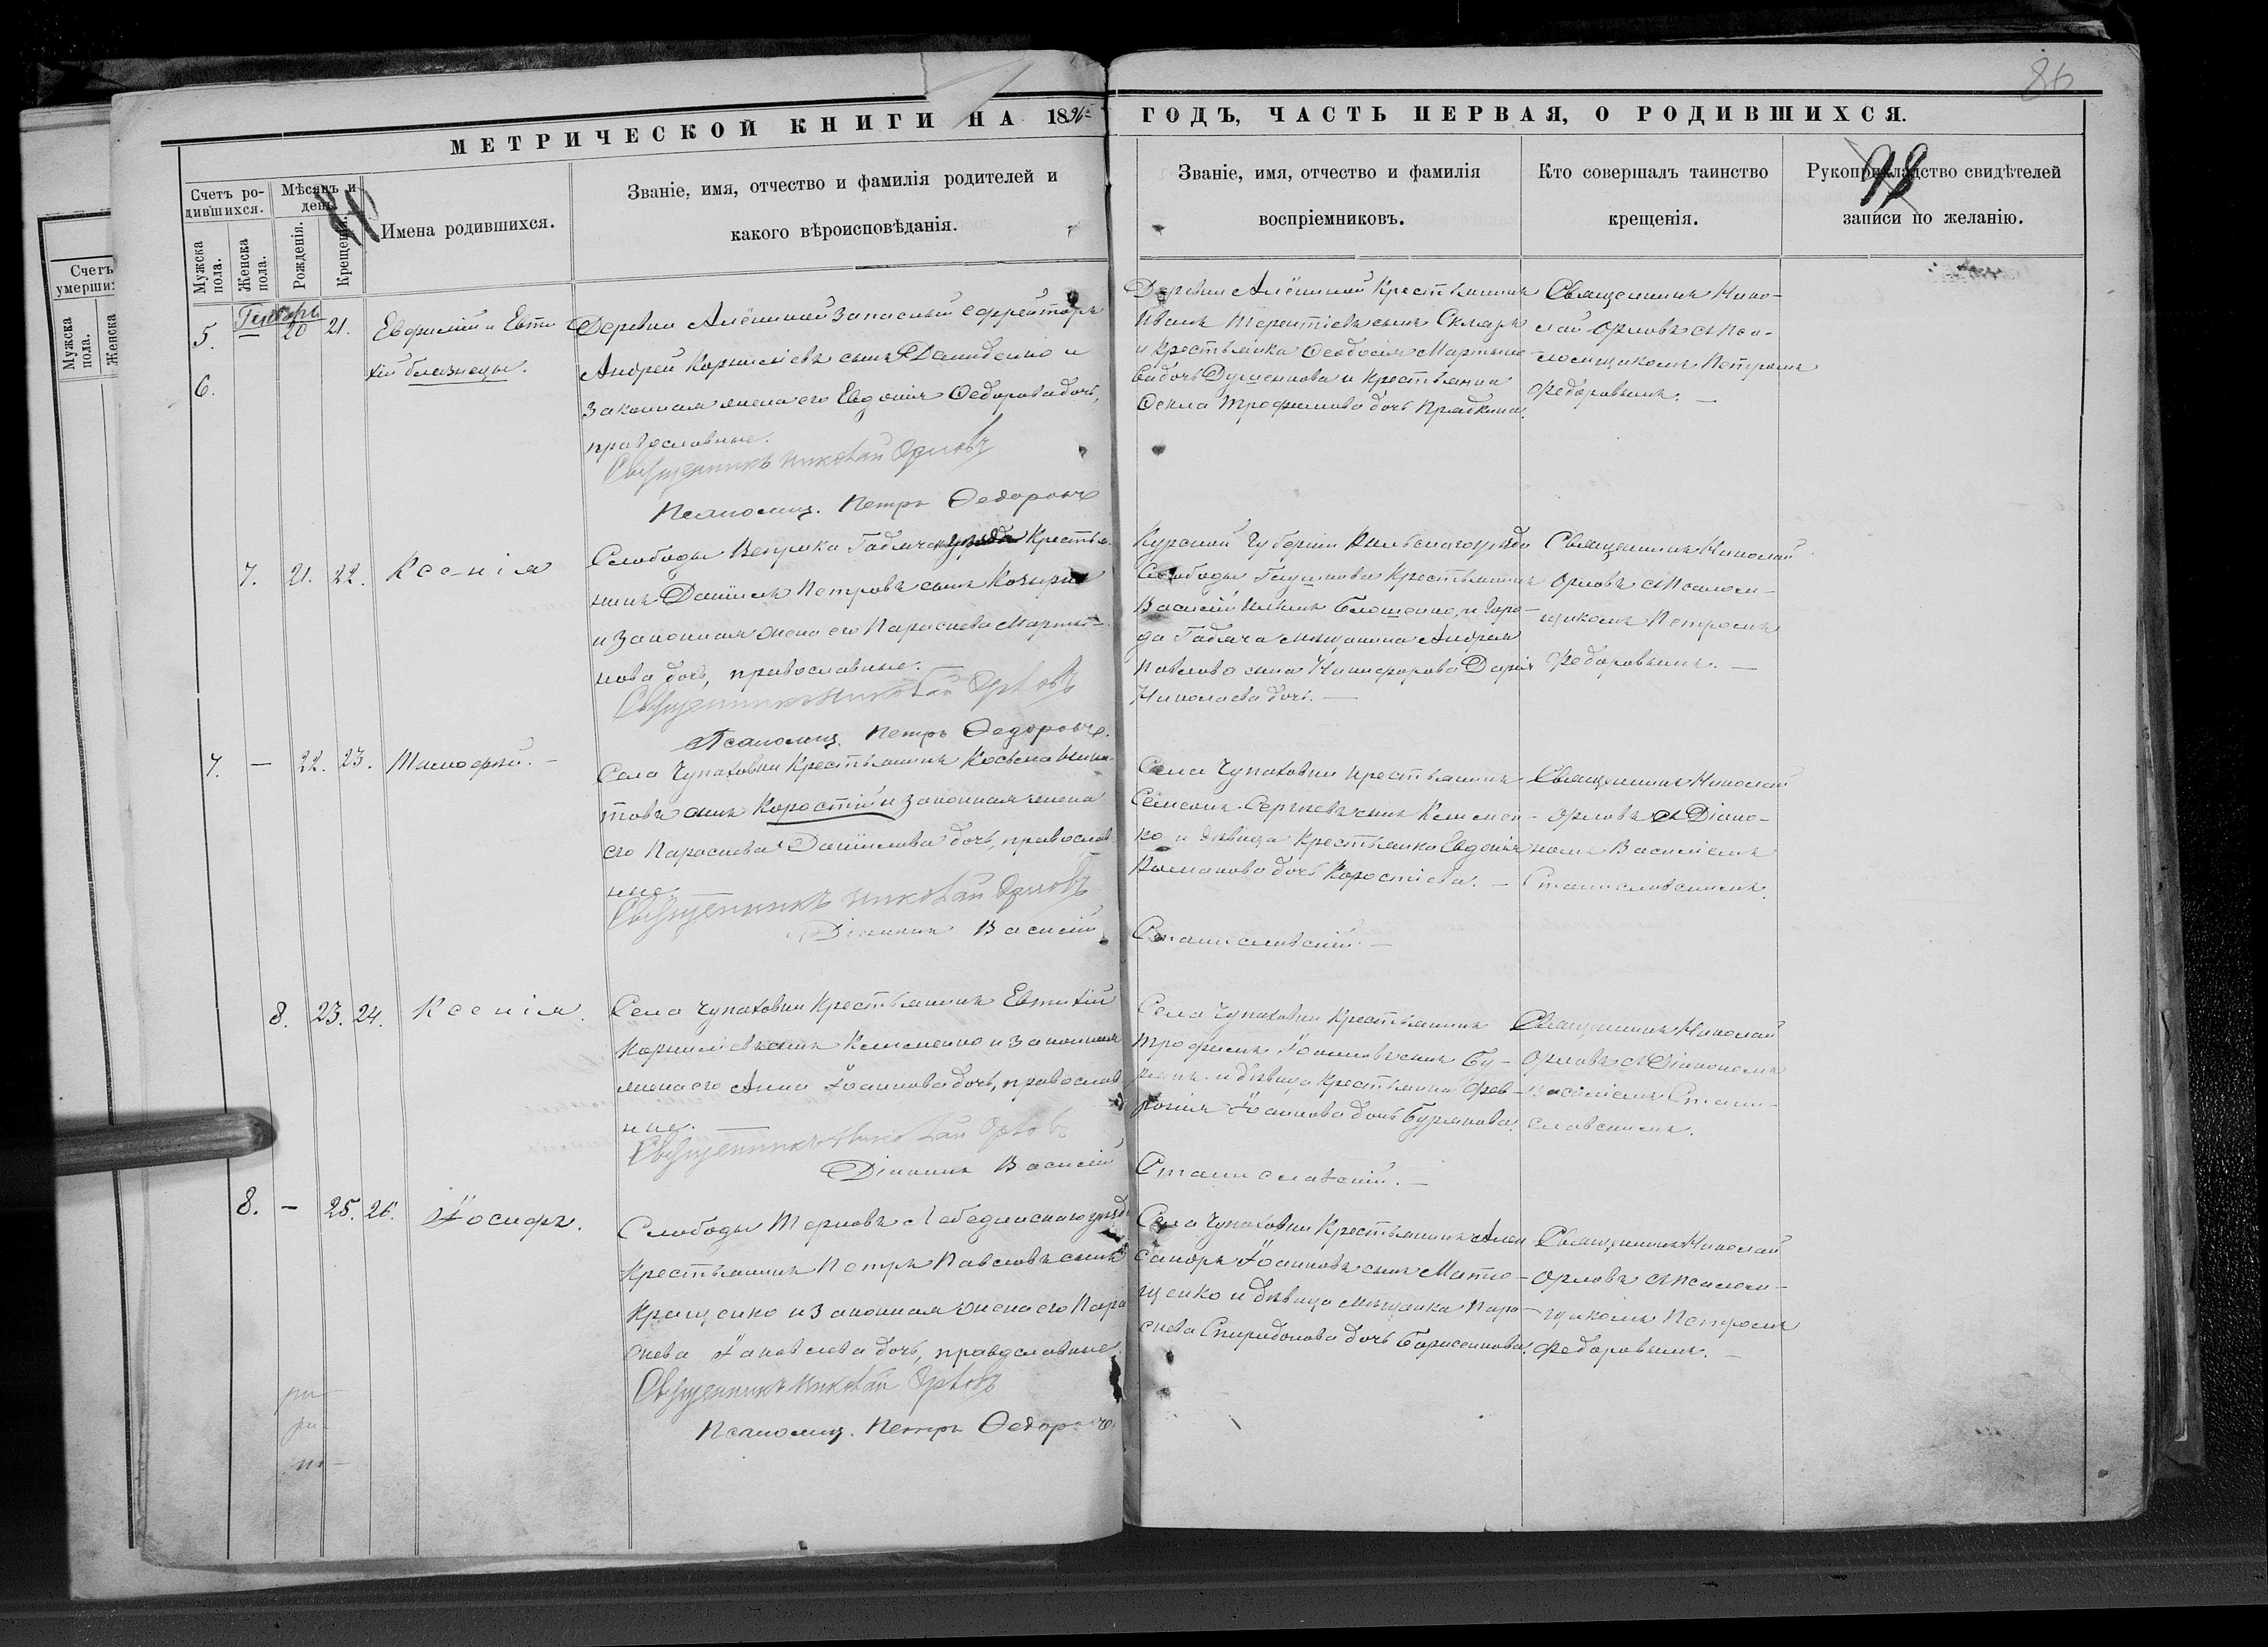 86
МЕТРИЧЕСКОЙ КНИГИ НА 1896
ГОДЪ, ЧАСТЬ ПЕРВАЯ, О РОДИВШИХСЯ.
98
Счетъ ро-
дившихся.
Мужска пола.
Женска пола.
Мѣсяцъ и
день.
Рожденія.
Крещенія.
Имена родившихся.
Званіе, имя, отчество и фамилія родителей и
какого вѣроисповѣданія.
Званіе, имя, отчество и фамилія
воспріемниковъ.
Кто совершалъ таинство
крещенія.
Рукоприкладство свидѣтелей
записи по желанію.
Счетъ
умерши
Мужска пола.
Женска
5.
6.
—
20
21.
Евфимій и Евти
хій близнецы.
Деревни Алёшиной запасный ефрейторъ
Андрей Корниліевъ сынъ Демиденко и
законная жена его Евдокія Ѳедорова дочь,
православные.
Священникъ Николай Орловъ
Псаломщ. Петръ Ѳедоровъ
Деревни Алёшиной Крестьянинъ
Иванъ Терентіевъ сынъ Скляръ
и крестьянка Ѳеодосія Мартыно
ва дочь и Крестьянка
Ѳекла Трофимова дочь
Священникъ Нико-
лай Орловъ съ Пса-
ломщикомъ Петромъ
Федоровымъ. —
7.
21.
22.
Ксенія
Слободы Веприка Гадячск уѣзда Крестья-
нинъ Даніилъ Петровъ сынъ
и законная жена его Параскева Марты-
нова дочь, православные. —
Священникъ Николай Орловъ
Псаломщ. Петръ Ѳедоровъ.
Курской Губерніи уѣзда
Слободы Крестьянинъ
Василій Ильинъ и горо-
да Гадяча мѣщанина Андрея
Павлова сына Никифорова Дарія
Николаева дочь. —
Священникъ Николай
Орловъ съ Псалом-
щикомъ Петромъ
Федоровымъ. —
7.
—
22.
23.
Тимофей. —
Села Чупаховки Крестьянинъ Косьма Ники-
товъ сынъ Коростій и законная жена
его Параскева Даніилова дочь, православ
ные.
Священникъ Николай Орловъ
Діаконъ Василій
Станиславскій. —
Села Чупаховки крестьянинъ
Симеонъ Сергіевъ сынъ Клименн-
ко и дѣвица Крестьянка Евдокія
Романова дочь Коростіева. —
Священникъ Николай
Орловъ съ Діако-
номъ Василіемъ
Станиславскимъ.
8.
23.
24.
Ксенія.
Села Чупаховки Крестьянинъ Евтихій
Корниліевъ сынъ Клименко и законная
жена его Анна Іоаннова дочь, православ
ные. —
Священникъ Николай Орловъ
Діаконъ Василій
Станиславскій. —
Села Чупаховки Крестьянинъ
Трофимъ Іоанновъ сынъ Бу-
рякъ и дѣвица крестьянка Фев-
ронія Іоаннова дочь Бурякова.
Священникъ Николай
Орловъ съ Діакономъ
Василіемъ Стани-
славскимъ.
8.
—
25.
26.
Іосифъ.
Слободы Терновъ Лебединскаго уѣзда
Крестьянинъ Петръ Павловъ сынъ
Кращенко и законная жена его Пара
скева Іаковлева дочь, православные.
Священникъ Николай Орловъ
Псаломщ. Петръ Ѳедоровъ.
Села Чупаховки Крестьянинъ Алек
сандръ Іоанновъ сынъ Матю-
щенко и дѣвица мѣщанка Пара-
скева Спиридонова дочь Борисенкова.
Священникъ Николай
Орловъ съ Псалом-
щикомъ Петромъ
Федоровымъ. —